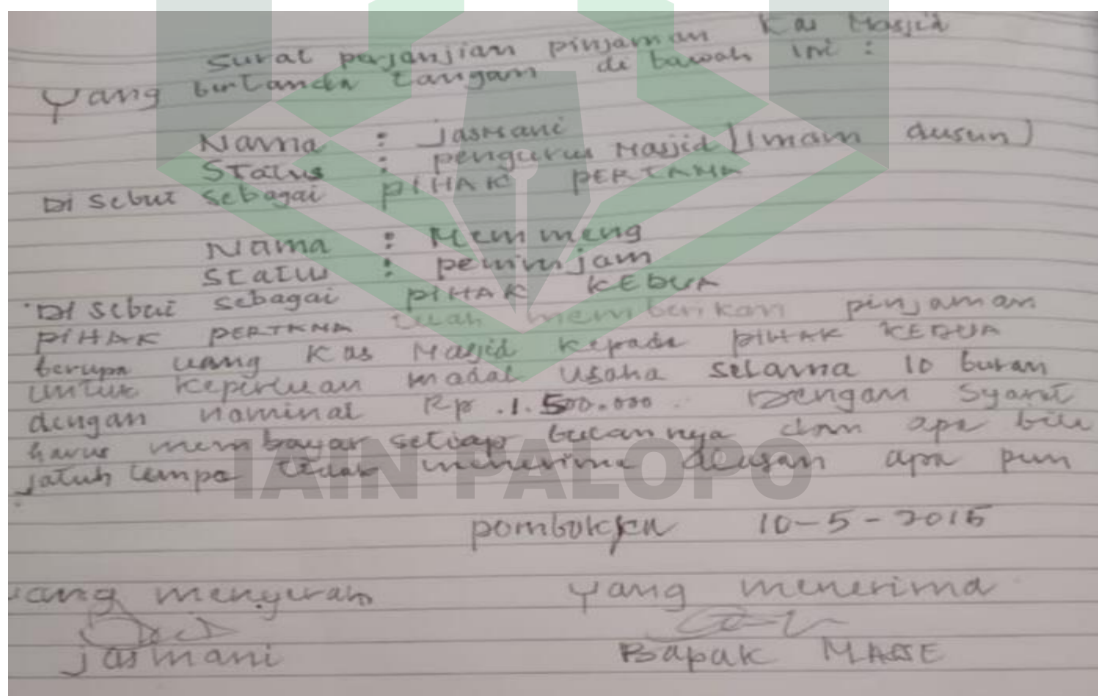 Surat perjanjian pinjaman Kas Masjid
Yang bertanda tangam di bawah ini :
Nama : jasmani
Status : pengurus Masjid [Imam dusun)
Di sebut sebagai PIHAK PERTAMA
Nama : Memmeng
Status : peminjam
Di sebut sebagai PIHAK KEDUA
PIHAK PERTAMA telah memberikan pinjaman
berupa uang Kas Masjid kepada PIHAK KEDUA
untuk keperluan modal usaha selama 10 bulan
dengan nominal Rp .1.500.000. Dengan Syarat
harus membayar setiap bulannya dan apa bila
jatuh tempo tidak menerima alasan apa pun
IAIN PALOPO
10-5-2015
yang menyerah yang menerima
jasmani Bapak MASSE